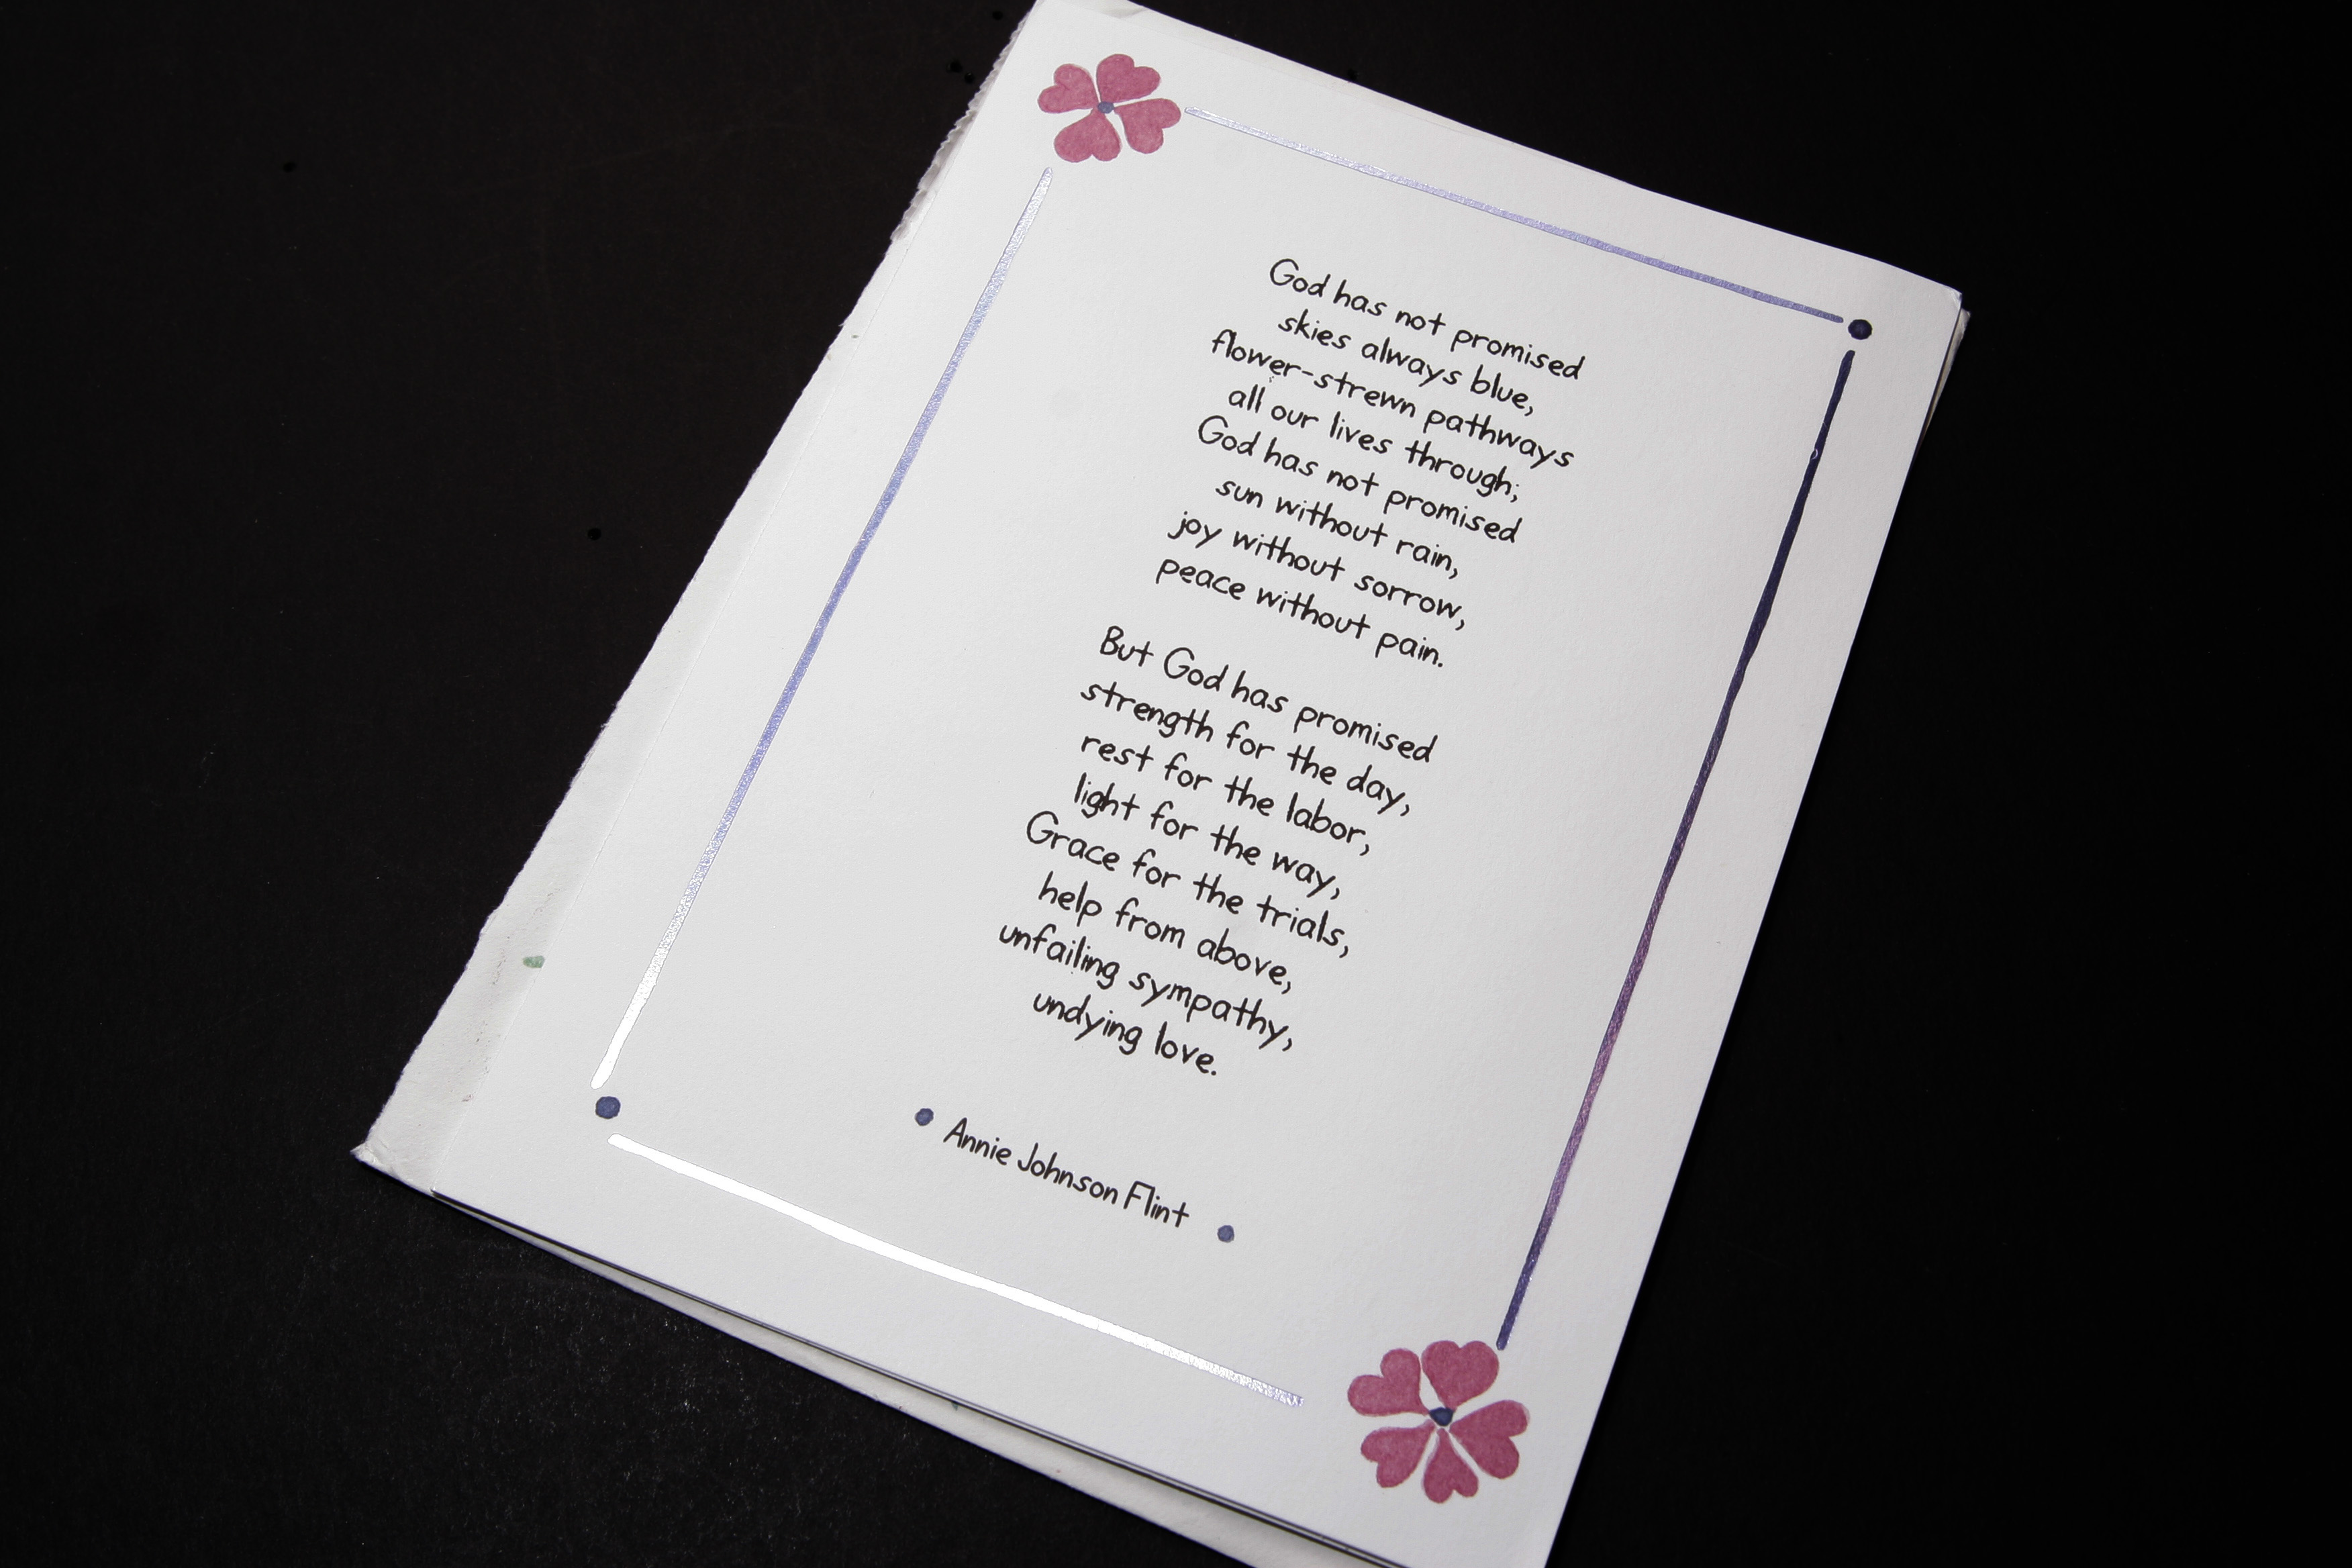 God has not promised
skies always blue,
flower-strewn pathways
all our lives through;
God has not promised
sun without rain,
joy without sorrow,
peace without pain.
But God has promised
strength for the day,
rest for the labor,
light for the way,
Grace for the trials,
help from above,
unfailing sympathy,
undying love.
Annie Johnson Flint